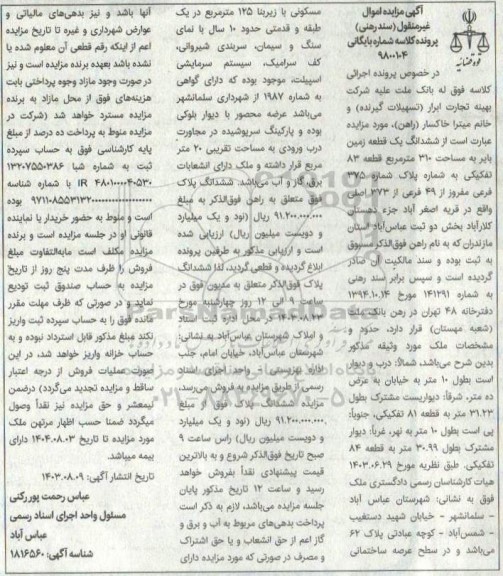 آگهی مزایده اموال
غیرمنقول (سند رهنی)
پرونده کلاسه شماره بایگانی
۹۸۰۰۱۰۴
قوه قضائیه
در خصوص پرونده اجرائی
کلاسه فوق له بانک ملت علیه شرکت
بهینه تجارت ابرار (تسهیلات گیرنده) و
خانم میترا خاکسار (راهن)، مورد مزایده
عبارت است از ششدانگ یک قطعه زمین
بایر به مساحت ۳۱۰ مترمربع قطعه ۸۳
تفکیکی به شماره پلاک شماره ۳۷۵
فرعی مفروز از ۴۹ فرعی از ۳۷۳ اصلی
واقع در قریه اصغر آباد جزء دهستان
کلارآباد بخش دو ثبت عباس‌آباد استان
مازندران که به نام راهن فوق‌الذکر مسبوق
به ثبت بوده و سند مالکیت آن صادر
گردیده است و سپس برابر سند رهنی
به شماره ۱۴۱۲۹۱ مورخ ۱۳۹۴.۱۰.۱۴
دفترخانه ۴۸ تهران در رهن بانک ملت
(شعبه مهستان) قرار دارد، حدود و
مشخصات ملک مورد وثیقه مذکور
بدین شرح می‌باشد، شمالاً: درب و دیوار
است بطول ۱۰ متر به خیابان به عرض
ده متر، شرقاً: دیواریست مشترک بطول
۳۱.۲۳ متر به قطعه ۸۱ تفکیکی، جنوباً:
پی است بطول ۱۰ متر به نهر، غرباً: دیوار
مشترک بطول ۳۰.۹۹ متر به قطعه ۸۴
تفکیکی، طبق نظریه مورخ ۱۴۰۳.۰۶.۲۹
هیات کارشناسان رسمی دادگستری ملک
فوق به نشانی: شهرستان عباس آباد
- سلمانشهر - خیابان شهید دستغیب
- شمس‌آباد - کوچه عبادتی پلاک ۶۲
می‌باشد و در سطح عرصه ساختمانی
مسکونی با زیربنا ۱۲۵ مترمربع در یک
طبقه و قدمتی حدود ۱۰ سال با نمای
سنگ و سیمان، سربندی شیروانی،
کف سرامیک، سیستم سرمایشی
اسپیلت، موجود بوده که دارای گواهی
به شماره ۱۹۸۷ از شهرداری سلمانشهر
می‌باشد عرصه محصور با دیوار بلوکی
بوده و پارکینگ سرپوشیده در مجاورت
درب ورودی به مساحت تقریبی ۲۰ متر
مربع قرار داشته و ملک دارای انشعابات
برق، گاز و آب می‌باشد: ششدانگ پلاک
فوق متعلق به راهن فوق‌الذکر به مبلغ
۹۱.۲۰۰.۰۰۰.۰۰۰ ریال (نود و یک میلیارد
و دویست میلیون ریال) ارزیابی شده
است و ارزیابی مذکور به طرفین پرونده
ابلاغ گردیده و قطعی گردید، لذا ششدانگ
پلاک فوق‌الذکر متعلق به مدیون فوق در
ساعت ۹ الی ۱۲ روز چهارشنبه مورخ
۱۴۰۳.۰۸.۲۳ در محل اداره ثبت اسناد
و املاک شهرستان عباس‌آباد به نشانی:
شهرستان عباس‌آباد، خیابان امام، جنب
اداره بهزیستی - واحد اجرای اسناد
رسمی از طریق مزایده به فروش می‌رسد.
مزایده ششدانگ پلاک فوق از مبلغ
۹۱.۲۰۰.۰۰۰.۰۰۰ ریال (نود و یک میلیارد
و دویست میلیون ریال) راس ساعت ۹
صبح تاریخ فوق‌الذکر شروع و به بالاترین
قیمت پیشنهادی نقداً بفروش خواهد
رسید و ساعت ۱۲ تاریخ مذکور پایان
جلسه مزایده می‌باشد، لازم به ذکر است
پرداخت بدهی‌های مربوط به آب و برق و
گاز اعم از حق انشعاب و یا حق اشتراک
و مصرف در صورتی که مورد مزایده دارای
آنها باشد و نیز بدهی‌های مالیاتی و
عوارض شهرداری و غیره تا تاریخ مزایده
اعم از اینکه رقم قطعی آن معلوم شده یا
نشده باشد بعهده برنده مزایده است و نیز
در صورت وجود مازاد وجوه پرداختی بابت
هزینه‌های فوق از محل مازاد به برنده
مزایده مسترد خواهد شد (شرکت در
مزایده منوط به پرداخت ده درصد از مبلغ
پایه کارشناسی فوق به حساب سپرده
ثبت به شماره شبا ۱۳۲۰۷۵۵۰۳۸۶
IR ۴۸۰۱۰۰۰۰۴۰۵۳۰ با شماره شناسه
۹۷۱۱۰۸۵۵۳۱۳۲۰۰۰۰۰۰۰۰۰۰۰۰۰۰ بوده
است و منوط به حضور خریدار یا نماینده
قانونی او در جلسه مزایده است و برنده
مزایده مکلف است مابه‌التفاوت مبلغ
فروش را ظرف مدت پنج روز از تاریخ
مزایده به حساب صندوق ثبت تودیع
نماید و در صورتی که ظرف مهلت مقرر
مانده فوق را به حساب سپرده ثبت واریز
نکند مبلغ مذکور قابل استرداد نبوده و به
حساب خزانه واریز خواهد شد، در این
صورت عملیات فروش از درجه اعتبار
ساقط و مزایده تجدید می‌گردد) درضمن
نیم‌عشر و حق مزایده نیز نقداً وصول
میگردد ضمنا حسب اظهار مرتهن ملک
مورد مزایده تا تاریخ ۱۴۰۴.۰۸.۰۳ دارای
بیمه میباشد.
تاریخ انتشار آگهی: ۱۴۰۳.۰۸.۰۹
عباس رحمت پور رکنی
مسئول واحد اجرای اسناد رسمی
عباس آباد
شناسه آگهی: ۱۸۱۶۵۶۰